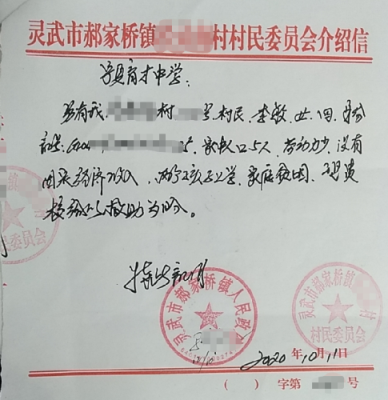 灵武市郝家桥镇 村村民委员会介绍信
育才中学:
兹有我 村 号村民,李敏,女,回,身份
证: 5,家中人口5人,劳动力少,没有
固定经济收入, 孩子上学,家庭贫困,望贵
校给以救助为盼。
特此证明
灵武市郝家桥镇人民政府
灵武市郝家桥镇
村民委员会
2020年10月11日
( )字第 号